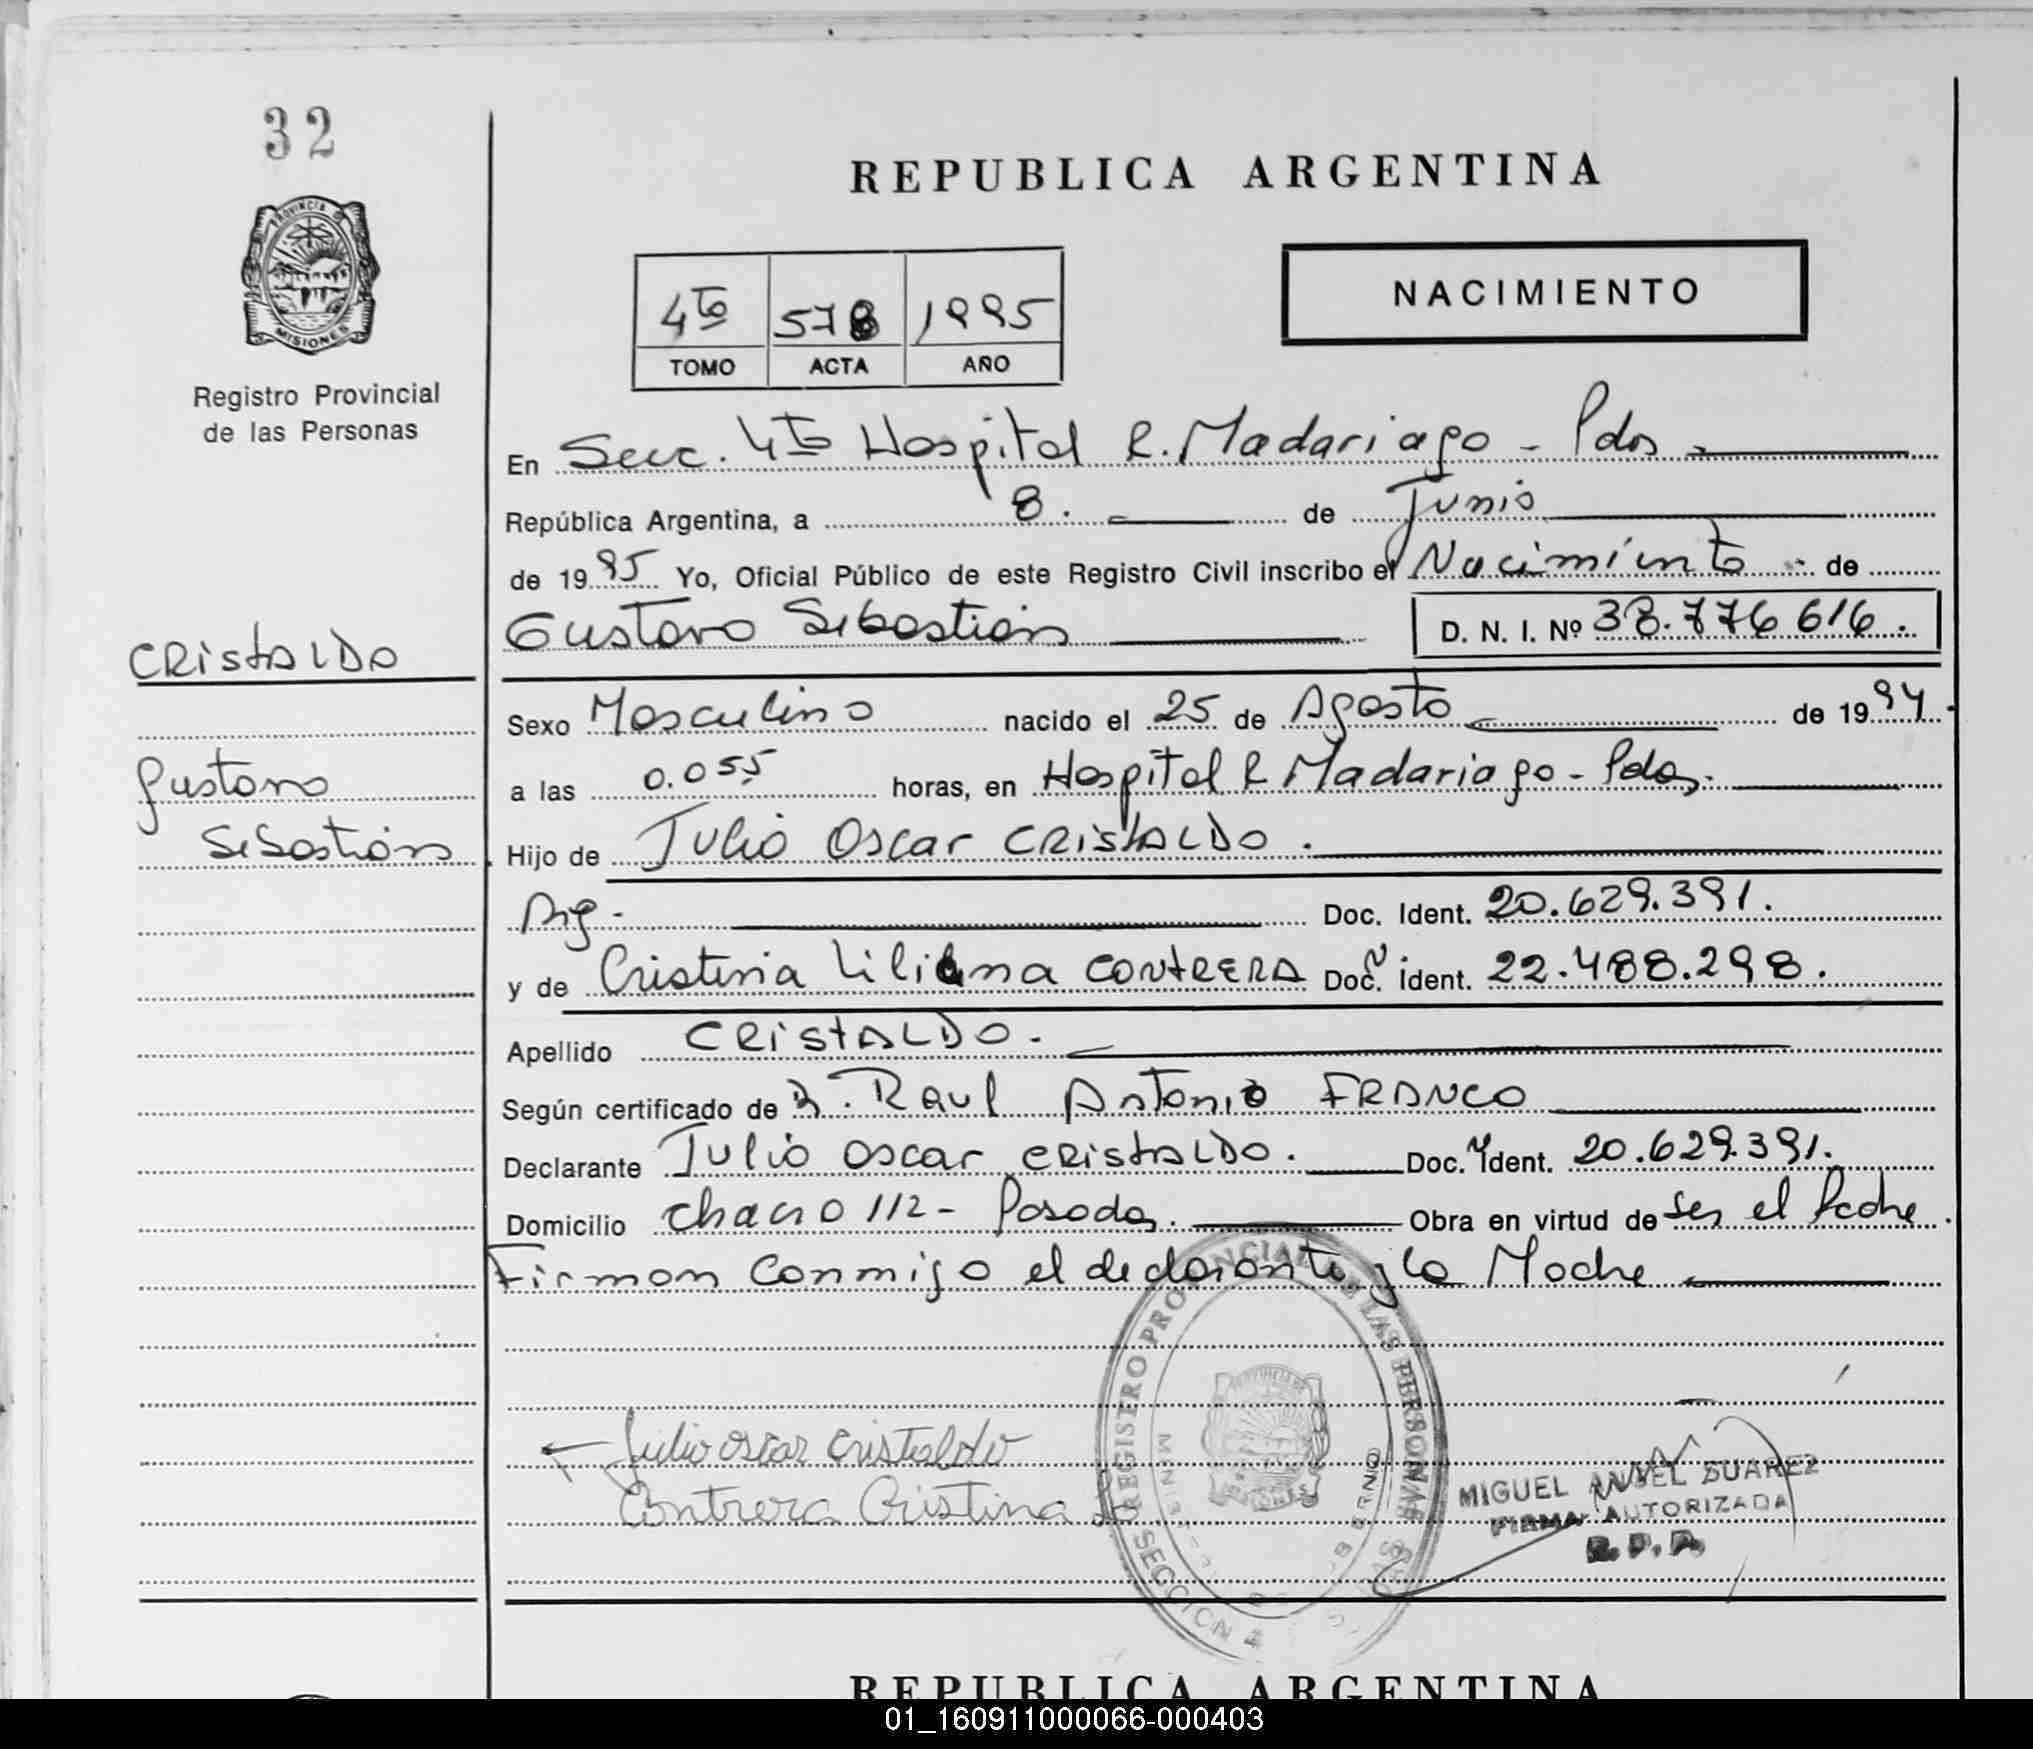 32
PROVINCIA DE
MISIONES
Registro Provincial
de las Personas
REPUBLICA ARGENTINA
NACIMIENTO
4to 578 1995
TOMO ACTA AÑO
En Secc. 4ta Hospital R. Madariaga - Pdas
República Argentina, a 8. de Junio
de 1995 Yo, Oficial Público de este Registro Civil inscribo el Nacimiento de
Gustavo Sebastián D. N. I. Nº 38.776 616.
CRISTALDO
Gustavo
Sebastián
Sexo Masculino nacido el 25 de Agosto de 1994.
a las 0.055 horas, en Hospital R Madariaga - Pdas.
Hijo de Julio Oscar CRISTALDO.
Arg. Doc. Ident. 20.629.391.
y de Cristina Liliana CONTRERA Doc. ident. 22.488.298.
Apellido CRISTALDO.
Según certificado de Raul Antonio FRANCO
Declarante Julio Oscar CRISTALDO. Doc. Ident. 20.629.391.
Domicilio chacra 112 - Posadas. Obra en virtud de Ser el Padre.
Firman conmigo el declarante y la Madre
Julio Oscar Cristaldo
Contrera Cristina
REGISTRO PROVINCIAL DE LAS PERSONAS
SECCION 4
MIGUEL ANGEL SUAREZ
FIRMA AUTORIZADA
R.P.P.
REPUBLICA ARGENTINA
01_160911000066-000403